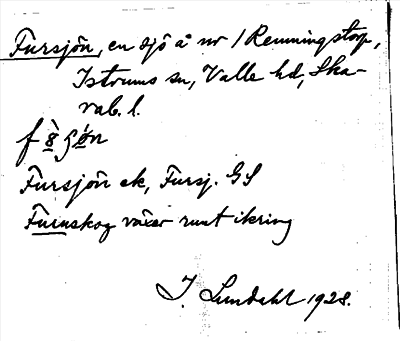 Fursjön, en sjö å nr 1 Remmingstorp,
Istrums sn, Valle hd, Ska-
rab. l.
Fursjön ek, Fursj. GS
Furuskog växer runt ikring
I. Lundahl 1928.